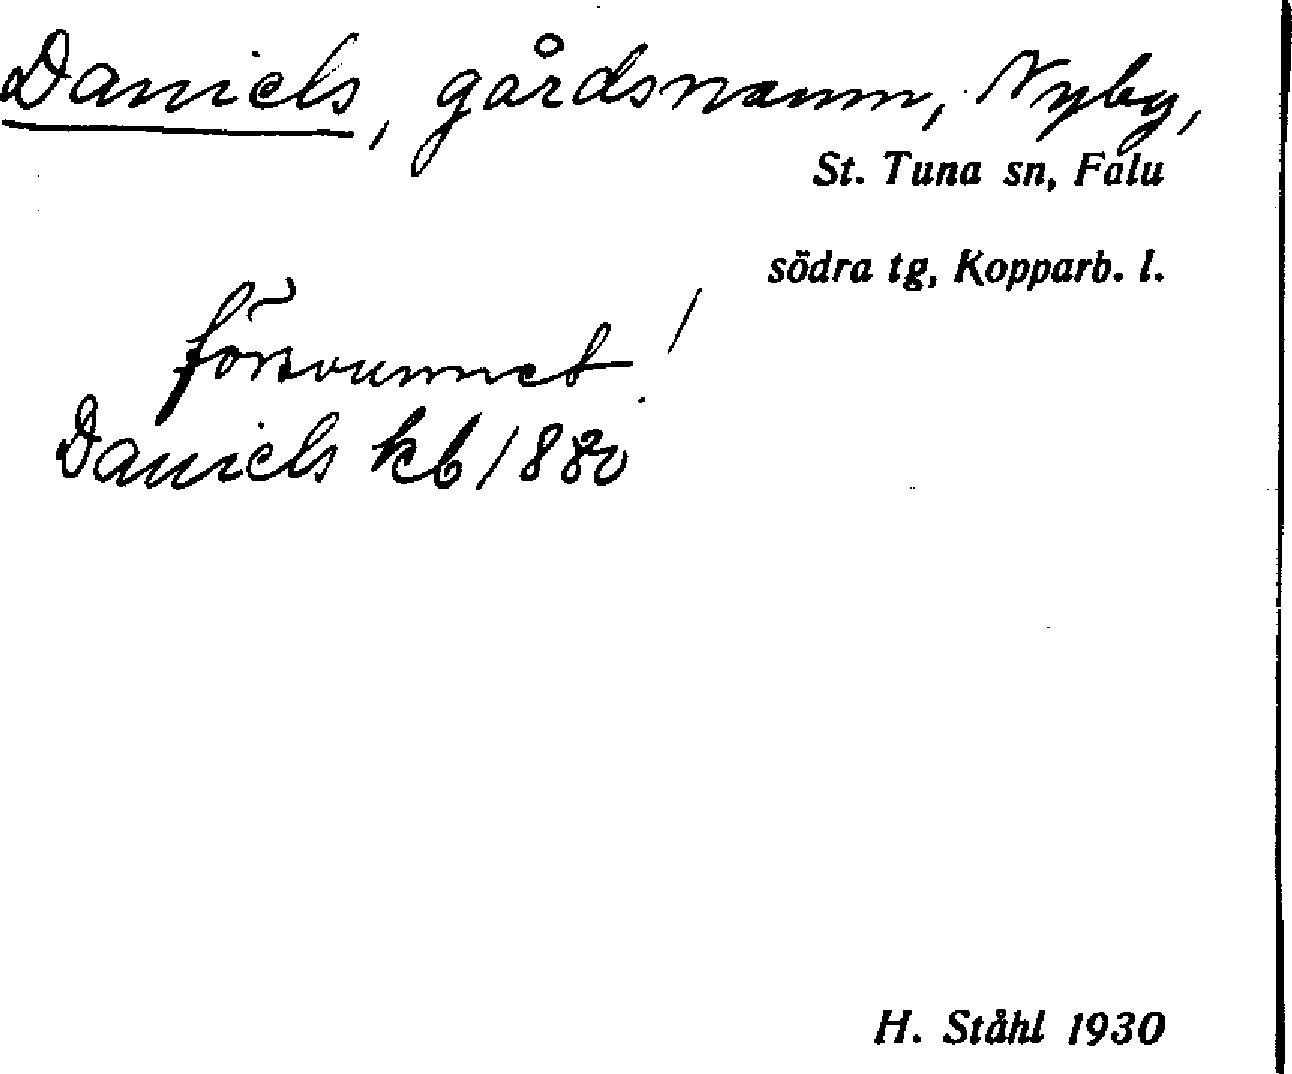 Daniels, gårdsnamn, Nyby,
St. Tuna sn, Falu
södra tg, Kopparb. l.
försvunnet!
Daniels kb 1880
H. Ståhl 1930